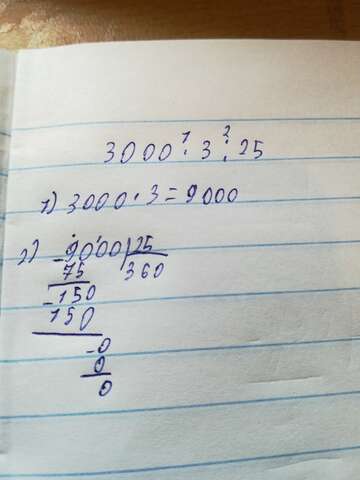 1 2
3000 · 3 : 25
1) 3000 · 3 = 9000
2) - 9000 | 25
75 360
- 150
150
- 0
0
0